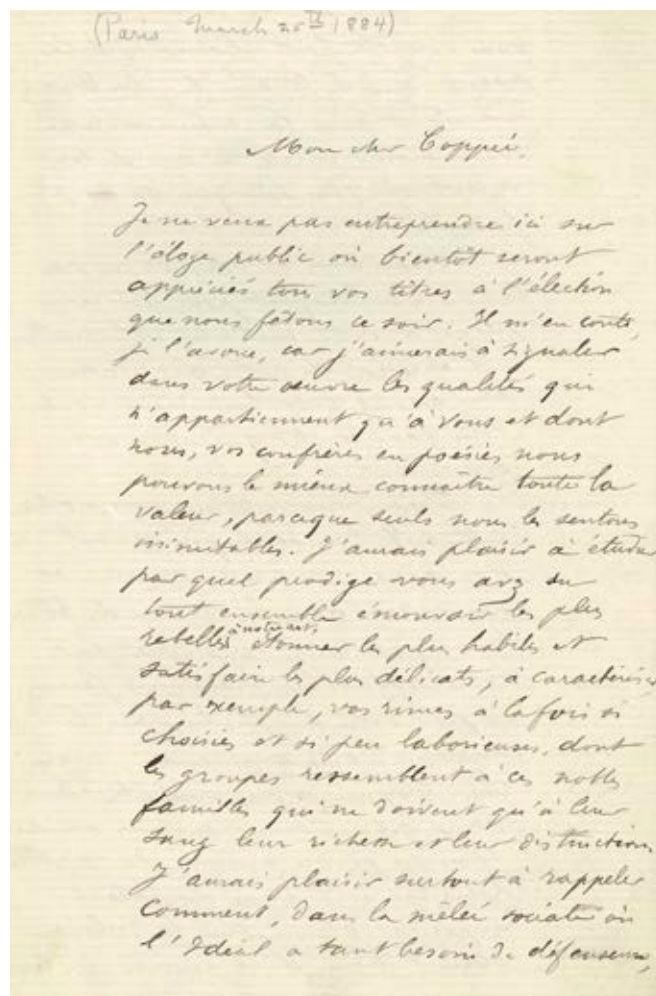 (Paris March 20th 1884)
Mon cher Coppée,
Je ne veux pas entreprendre ici sur
l'éloge public où bientôt seront
appréciés tous vos titres à l'élection
que nous fêtons ce soir. Il m'en coute,
je l'avoue, car j'aimerais à signaler
dans votre œuvre les qualités qui
n'appartiennent qu'à vous et dont
nous, vos confrères en poésies nous
pouvons le mieux connaître toute la
valeur, parceque seuls nous les sentons
inimitables. J'aurais plaisir à étudier
par quel prodige vous avez su
tout ensemble émouvoir les plus
rebelles à notre art, étonner les plus habiles et
satisfaire les plus délicats, à caractériser
par exemple, vos rimes à la fois si
choisies et si peu laborieuses, dont
les groupes ressemblent à ces nobles
familles qui ne doivent qu'à leur
sang leur richesse et leur distinction.
J'aurais plaisir surtout à rappeler
comment, dans la mêlée sociale où
l'Idéal a tant besoin de défenseurs,